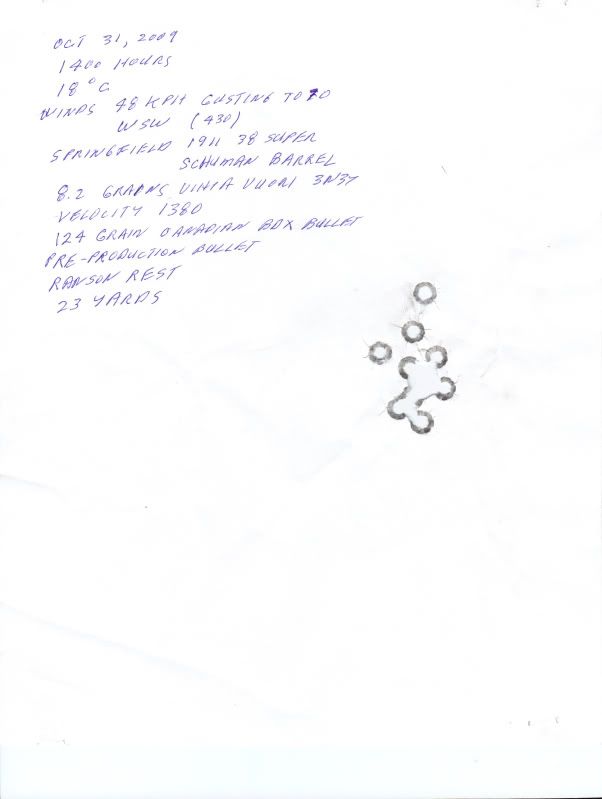 OCT 31, 2009
1400 HOURS
18°C
WINDS 48 KPH GUSTING TO 70
WSW (430)
SPRINGFIELD 1911 38 SUPER
SCHUMAN BARREL
8.2 GRAINS VIHTA VUORI 3N37
VELOCITY 1380
124 GRAIN CANADIAN BDX BULLET
PRE-PRODUCTION BULLET
RANSON REST
23 YARDS